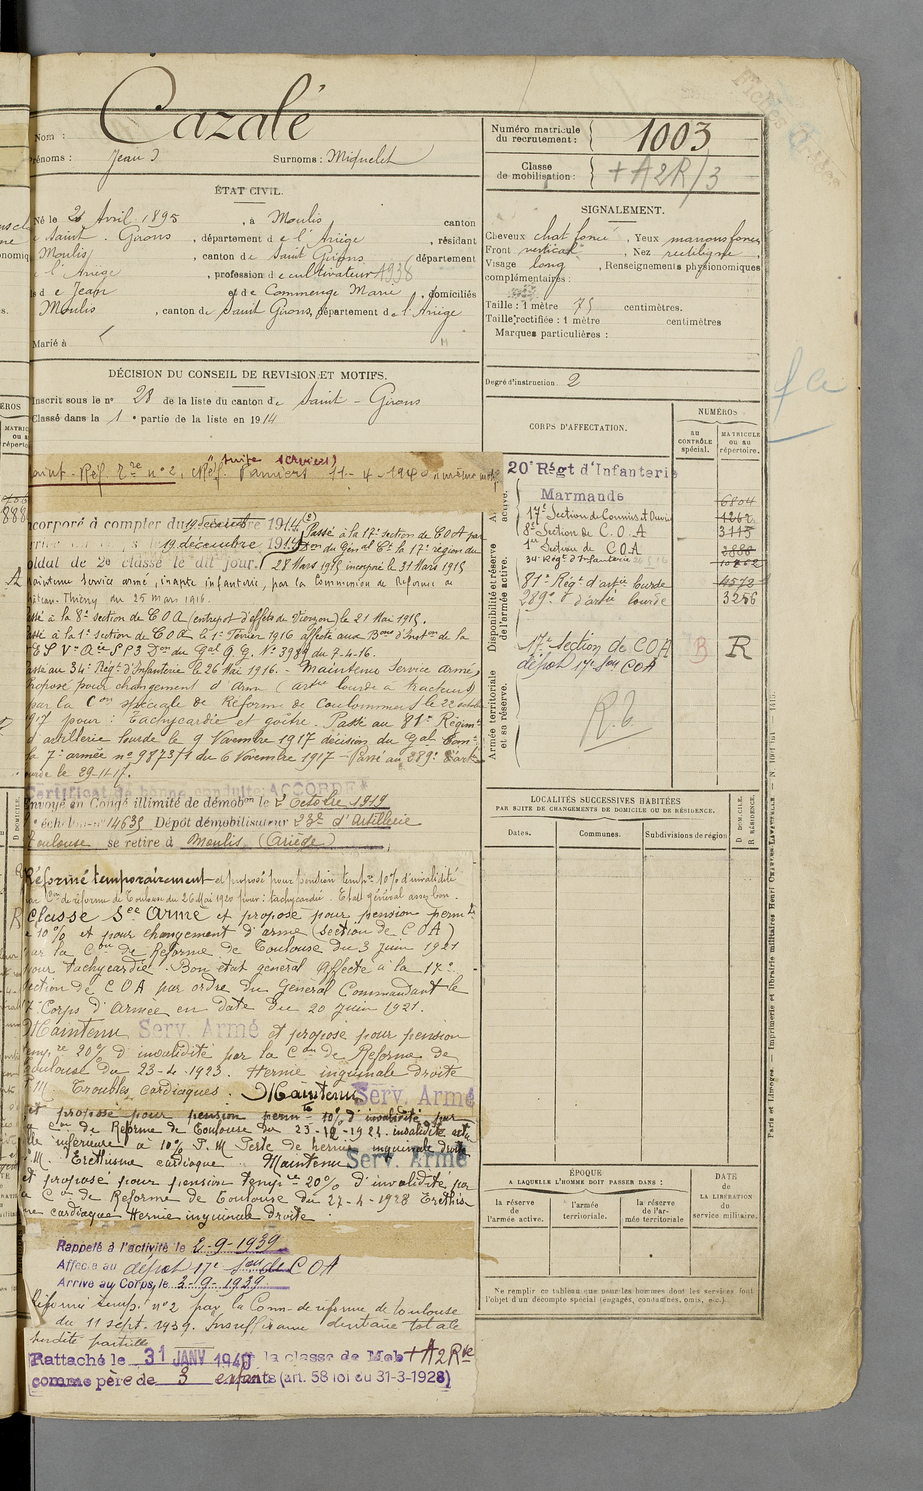 Nom : Cazalé
Prénoms : Jean
Surnoms : Miquelet
Numéro matricule du recrutement : 1003
Classe de mobilisation : + A2R/3
ÉTAT CIVIL.
Né le 2 Avril 1895, à Moulis canton
de Saint-Girons, département de l'Ariège, résidant
Moulis, canton de Saint Girons département
de l'Ariège, profession de cultivateur 1938
fils de Jean et de Commenge Marie, domiciliés
Moulis, canton de Saint Girons, département de l'Ariège
Marié à
SIGNALEMENT.
Cheveux chat foncé, Yeux marrons foncés
Front vertical, Nez rectiligne,
Visage long, Renseignements physionomiques
complémentaires :
Taille : 1 mètre 75 centimètres.
Taille rectifiée : 1 mètre centimètres
Marques particulières :
Degré d'instruction. 2
DÉCISION DU CONSEIL DE REVISION ET MOTIFS.
Inscrit sous le n° 28 de la liste du canton de Saint-Girons
Classé dans la 1e partie de la liste en 1914
(suite services)
Incorporé à compter du 1914
19 décembre 1914
soldat de 2e classe le dit jour.
Passé à la 17e section de COA par
28 Mars 1915 incorporé le 31 Mars 1915
Maintenu service armé, inapte infanterie, par la Commission de Réforme de
Château-Thierry du 25 mars 1916.
Passé à la 8e section de COA (entrepôt d'effets de Vierzon) le 21 Mai 1915.
Passé à la 1e section de COA le 1er Février 1916
Passé au 34e Régt d'Infanterie le 26 Mai 1916. - Maintenu service armé,
proposé pour changement d'arme (artie lourde à tracteurs)
par la Con spéciale de Réforme de Coulommiers le 22
1917 pour : Tachycardie et goitre. Passé au 81e Régimt
d'artillerie lourde le 9 Novembre 1917 décision du Gal Comt
la 7e armée n° 9873/1 du 6 Novembre 1917 - Passé au 289e d'artie
lourde le 29-11-17.
Certificat de bonne conduite ACCORDÉ
Envoyé en Congé illimité de démobon le 2 Octobre 1919
échelon n° 14635 Dépôt démobilisateur 23e d'Artillerie
Toulouse se retire à Moulis (Ariège)
Réformé temporairement et proposé pour pension tempre 10% d'invalidité
par Con de réforme de Toulouse du 26 Mai 1920 pour : tachycardie. Etat général assez bon.
Classé See Armé et proposé pour pension permte
à 10% et pour changement d'arme (section de COA)
par la Con de Réforme de Toulouse du 3 juin 1921
pour tachycardie. Bon état général Affecté à la 17e
section de COA par ordre du Général Commandant le
17e Corps d'Armée en date du 20 juin 1921.
Maintenu Serv. Armé et proposé pour pension
tempre 20% d'invalidité par la Con de Réforme de
Toulouse du 23-4-1923. Hernie inguinale droite
P.M. Troubles cardiaques. Maintenu Serv. Armé
et proposé pour pension permte 10% d'invalidité par
la Con de Réforme de Toulouse du 23-12-1924. invalidité
inférieure à 10% P.M. Perte de hernie inguinale droite
P.M. Eréthisme cardiaque. Maintenu Serv. Armé
et proposé pour pension tempre 20% d'invalidité par
la Con de Réforme de Toulouse du 27-4-1928 Eréthisme
cardiaque Hernie inguinale droite.
Rappelé à l'activité le 2-9-1939
Affecté au dépôt 17e Son de COA
Arrivé au Corps, le 3-9-1939
Réformé temp. n° 2 par la Com. de réforme de Toulouse
du 11 sept. 1939. Insuffisance dentaire totale
Rattaché le 31 JANV 1940 à la classe de Mob +A2Rve
comme père de 3 enfants (art. 58 loi du 31-3-1928)
CORPS D'AFFECTATION.
NUMÉROS
au CONTRÔLE spécial.
MATRICULE ou au répertoire.
Disponibilité et réserve de l'armée active.
Armée territoriale et sa réserve.
20e Régt d'Infanterie 6804
Marmande
17e Section de Commis et Ouvriers
8e Section de C.O.A 3115
1e Section de C.O.A 2888
34e Régt d'Infanterie
81e Régt d'artie lourde 4572
289e d° d'artie lourde 3256
17e Section de COA B R
dépôt 17e Son COA
LOCALITÉS SUCCESSIVES HABITÉES
PAR SUITE DE CHANGEMENTS DE DOMICILE OU DE RÉSIDENCE.
Dates. Communes. Subdivisions de région D. DOMICILE. R. RÉSIDENCE.
ÉPOQUE
A LAQUELLE L'HOMME DOIT PASSER DANS :
la réserve de l'armée active.
l'armée territoriale.
la réserve de l'armée territoriale
DATE de LA LIBÉRATION du service militaire.
Ne remplir ce tableau que pour les hommes dont les services font
l'objet d'un décompte spécial (engagés, condamnés, omis, etc.)
Paris et Limoges. — Imprimerie et librairie militaires Henri CHARLES-LAVAUZELLE.